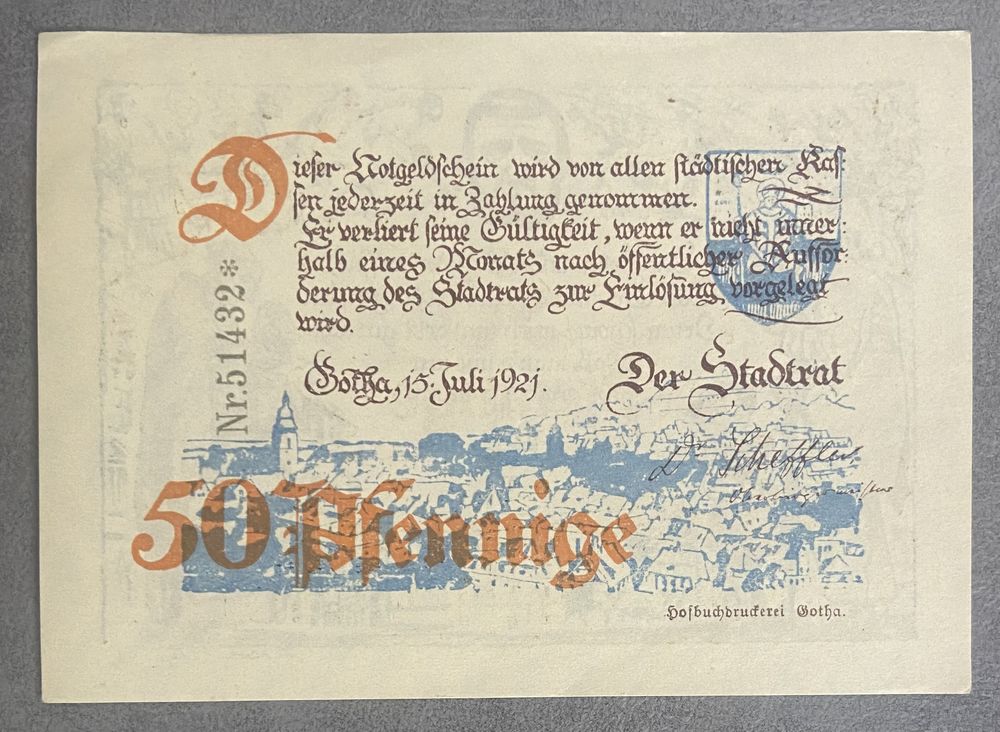 Dieser Notgeldschein wird von allen städtischen Kas:
sen jederzeit in Zahlung genommen.
Er verliert seine Gültigkeit, wenn er nicht inner:
halb eines Monats nach öffentlicher Auffor:
derung des Stadtrats zur Einlösung vorgelegt
wird.
Nr.51432*
Gotha, 15. Juli 1921.
Der Stadtrat
Dr Scheffler
Oberbürgermeister
50 Pfennige
Hofbuchdruckerei Gotha.